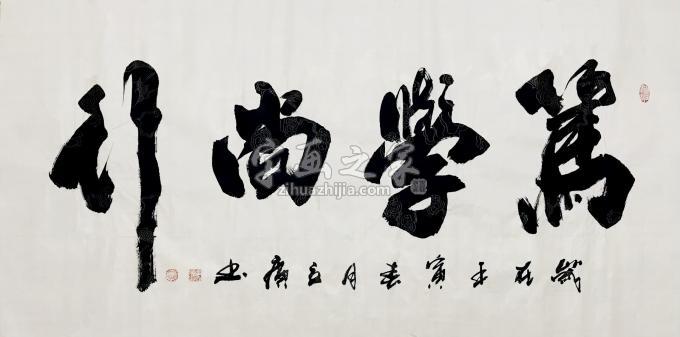 篤學尚行
歲在壬寅春月廣书
字画之家
zihuazhijia.com